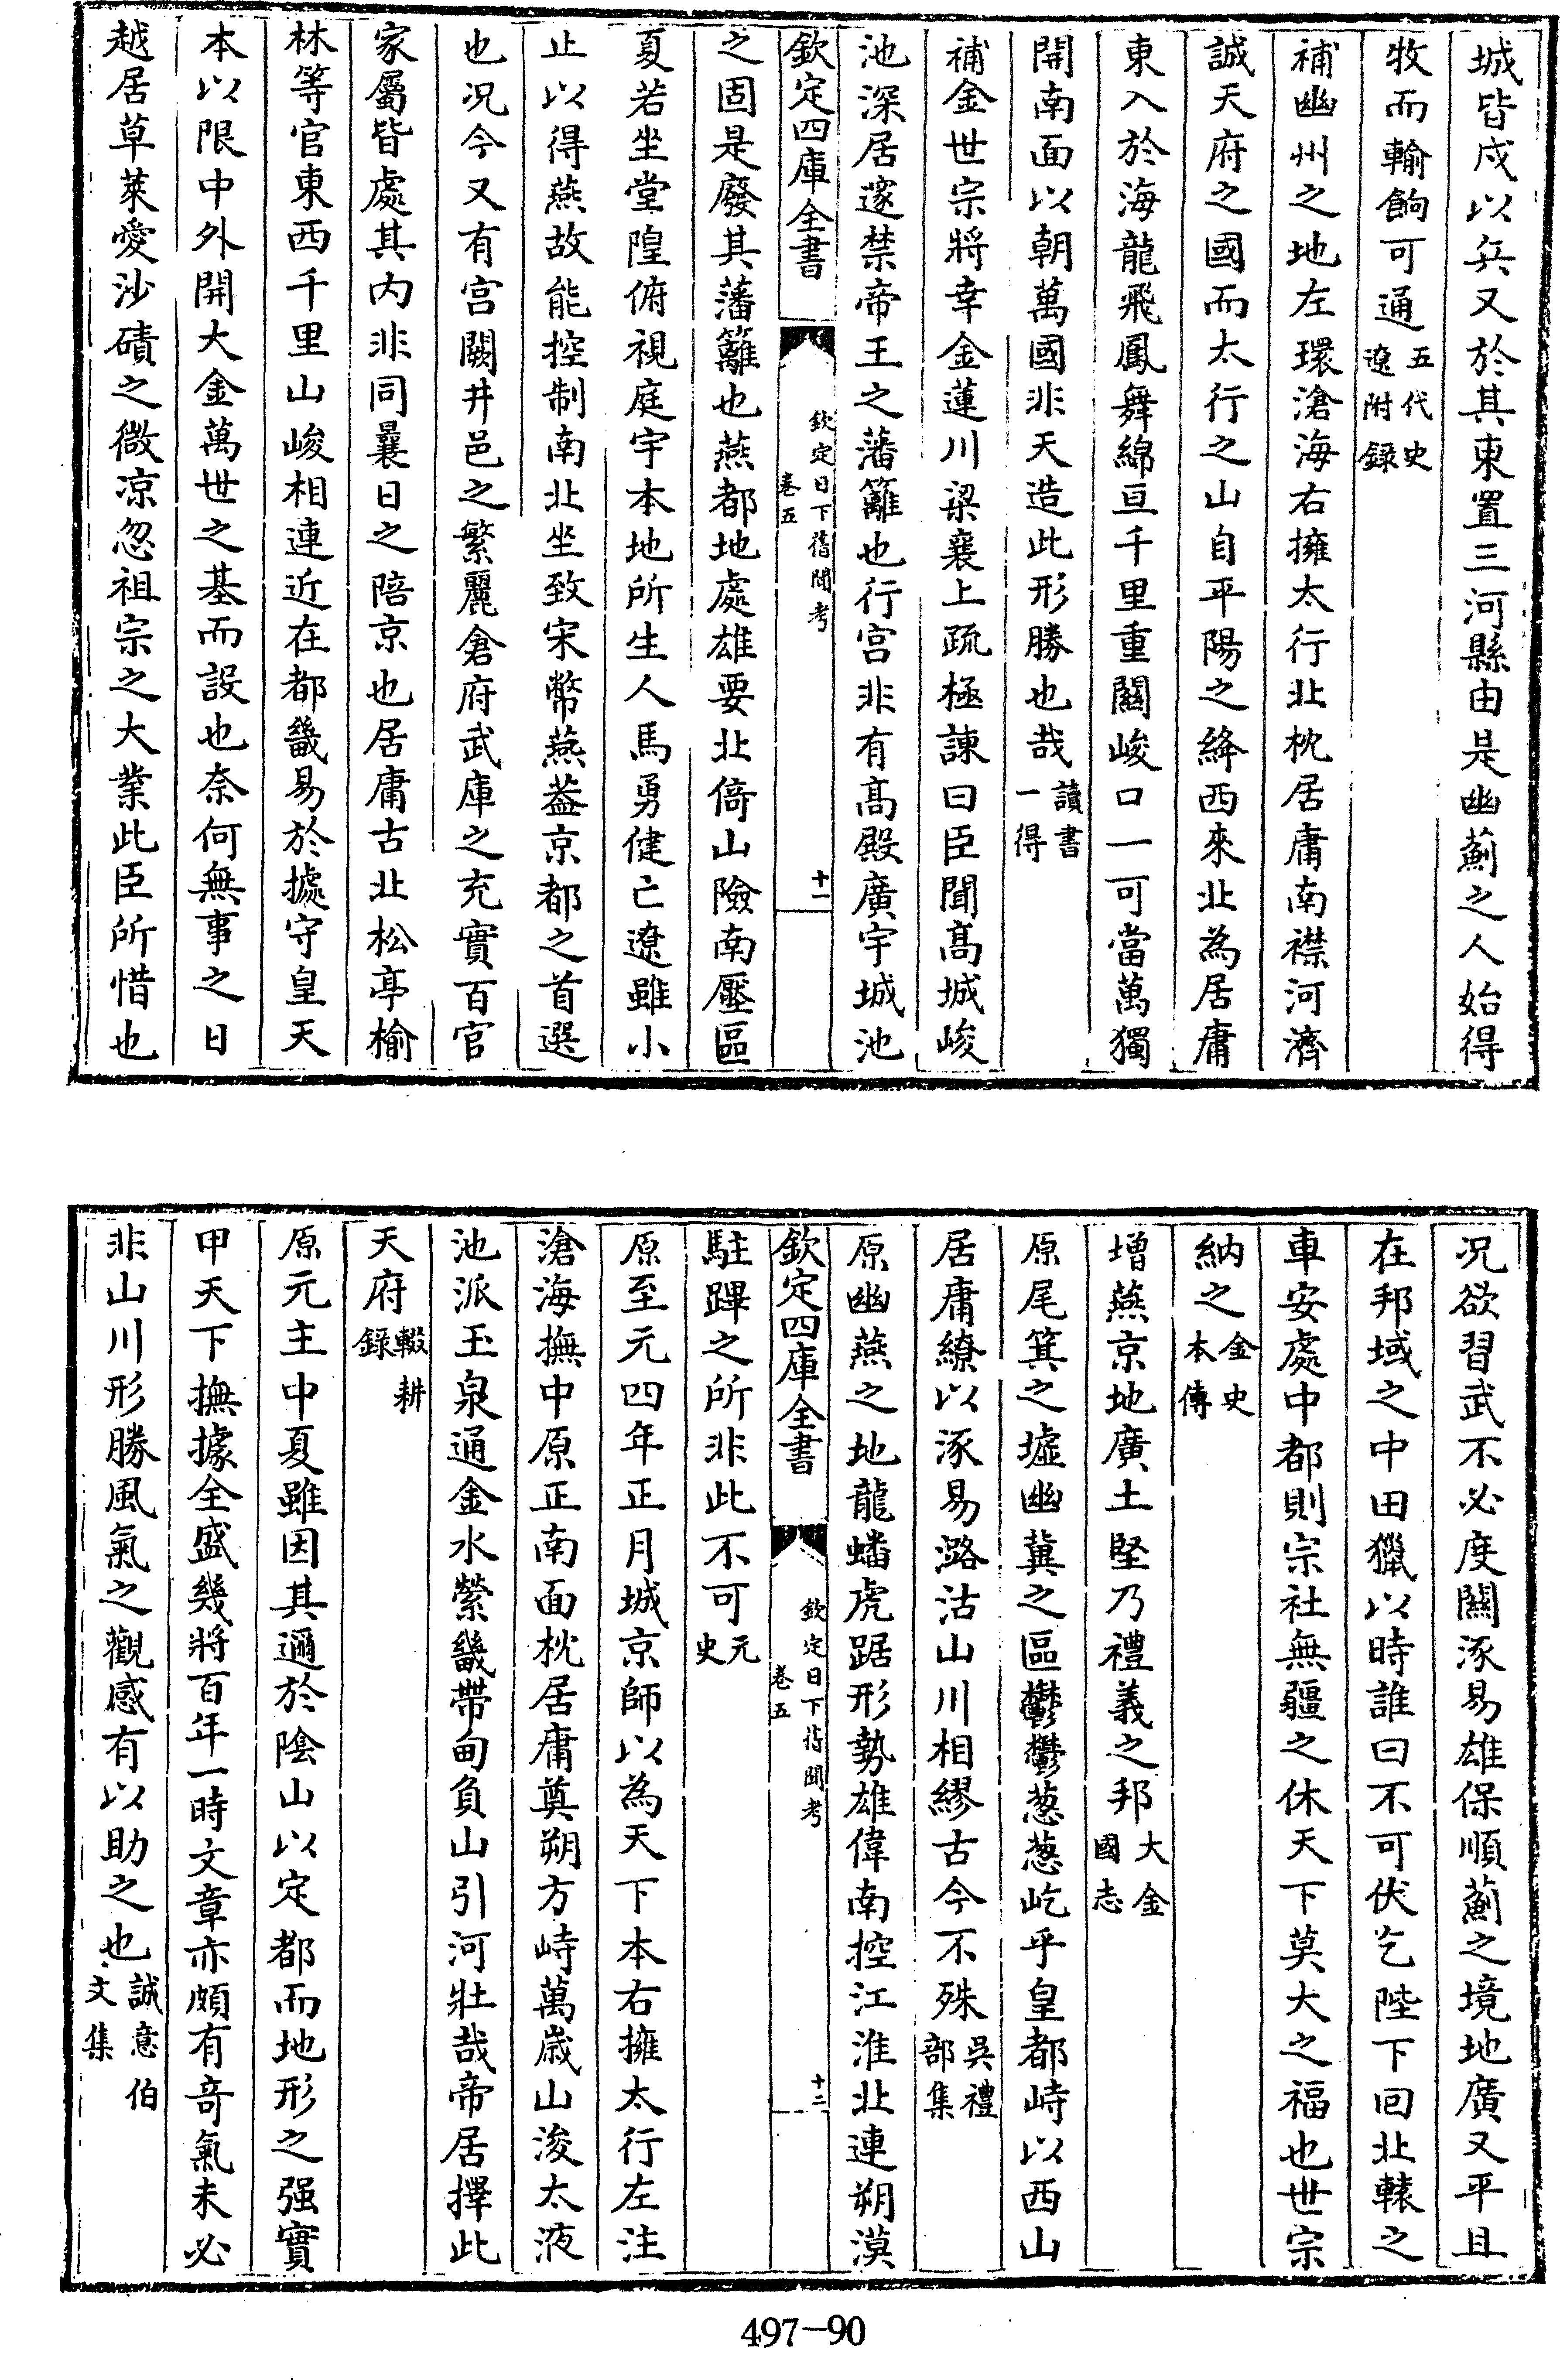 城皆戍以兵又於其東置三河縣由是幽薊之人始得
牧而輸餉可通五代史遼附錄
補幽州之地左環滄海右擁太行北枕居庸南襟河濟
誠天府之國而太行之山自平陽之絳西來北為居庸
東入於海龍飛鳳舞綿亘千里重關峻口一可當萬獨
開南面以朝萬國非天造此形勝也哉讀書一得
補金世宗將幸金蓮川梁襄上疏極諫曰臣聞高城峻
池深居邃禁帝王之藩籬也行宫非有高殿廣宇城池
欽定四庫全書
欽定日下舊聞考
卷五
十一
之固是廢其藩籬也燕都地處雄要北倚山險南壓區
夏若坐堂隍俯視庭宇本地所生人馬勇健亡遼雖小
止以得燕故能控制南北坐致宋幣燕葢京都之首選
也况今又有宫闕井邑之繁麗倉府武庫之充實百官
家屬皆處其内非同曩日之陪京也居庸古北松亭榆
林等官東西千里山峻相連近在都畿易於據守皇天
本以限中外開大金萬世之基而設也奈何無事之日
越居草萊愛沙磧之微凉忽祖宗之大業此臣所惜也
况欲習武不必度關涿易雄保順薊之境地廣又平且
在邦域之中田獵以時誰曰不可伏乞陛下回北轅之
車安處中都則宗社無疆之休天下莫大之福也世宗
納之金史本傳
增燕京地廣土堅乃禮義之邦大金國志
原尾箕之墟幽冀之區鬱鬱葱葱屹乎皇都峙以西山
居庸繚以涿易潞沽山川相繆古今不殊吳禮部集
原幽燕之地龍蟠虎踞形勢雄偉南控江淮北連朔漠
欽定四庫全書
欽定日下舊聞考
卷五
十二
駐蹕之所非此不可元史
原至元四年正月城京師以為天下本右擁太行左注
滄海撫中原正南面枕居庸奠朔方峙萬歲山浚太液
池派玉泉通金水縈畿帶甸負山引河壯哉帝居擇此
天府輟耕錄
原元主中夏雖因其邇於陰山以定都而地形之强實
甲天下撫據全盛幾將百年一時文章亦頗有竒氣未必
非山川形勝風氣之觀感有以助之也誠意伯文集
497-90